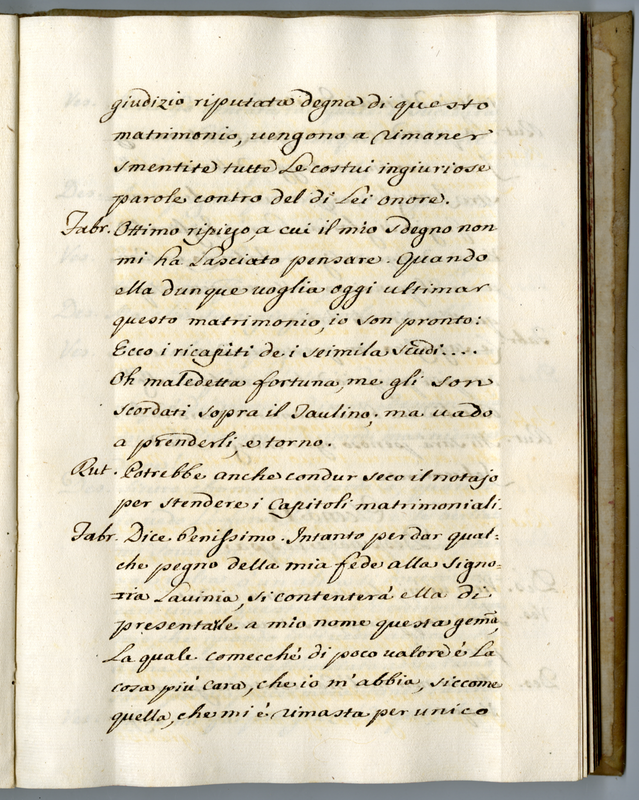 giudizio riputata degna di questo
matrimonio, vengono a rimaner
smentite tutte Le costui ingiuriose
parole contro del di Lei onore.
Fabr. Ottimo ripiego, a cui il mio sdegno non
mi ha Lasciato pensare. Quando
ella dunque voglia oggi ultimar
questo matrimonio, io son pronto:
Ecco i ricapiti de i seimila scudi....
Oh maledetta fortuna, me gli son
scordati sopra il Taulino; ma vado
a prenderli, e torno.
Rut. Potrebbe anche condur seco il notajo
per stendere i Capitoli matrimoniali.
Fabr. Dice benissimo. Intanto per dar qual=
che pegno della mia fede alla signo=
ria Lavinia, si contenterá ella di
presentarle a mio nome questa gem̃a,
La quale comecché di poco valore é La
cosa piú cara, che io m'abbia, siccome
quella, che mi é rimasta per unico